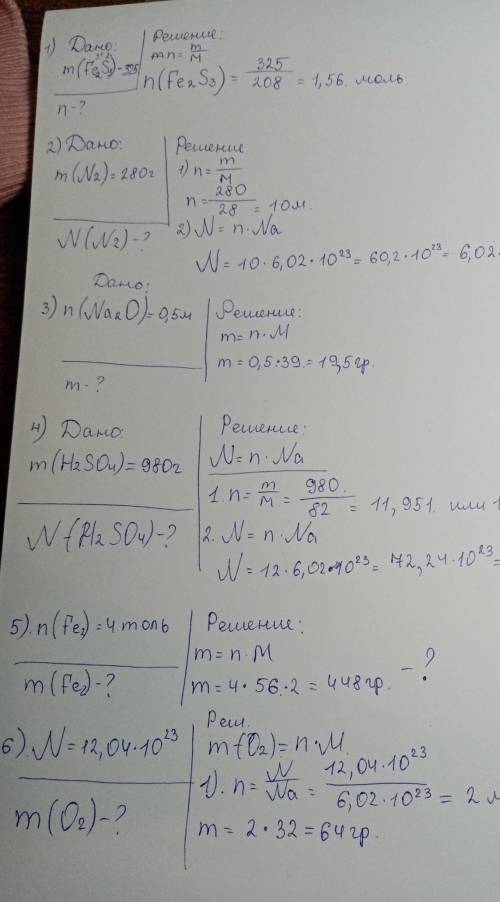 1) Дано:
m(Fe2S3)=325
n-?
Решение:
n=m/M
n(Fe2S3)=325/208=1,56. моль
2) Дано:
m(N2)=280г
N(N2)-?
Решение
1) n=m/M
n=280/28=10м.
2) N=n·Na
N=10·6,02·10²³=60,2·10²³=6,02·
Дано:
3) n(Na2O)=0,5м
m-?
Решение:
m=n·M
m=0,5·39.=19,5гр.
4) Дано:
m(H2SO4)=980г
N(H2SO4)-?
Решение:
N=n·Na
1. n=m/M=980./82=11,951. или 1
2. N=n·Na
N=12·6,02·10²³=72,24·10²³=
5). n(Fe2)=4 моль
m(Fe2)-?
Решение:
m=n·M
m=4·56·2=448гр. -?
6). N=12,04·10²³
m(O2)-?
Реш.
m(O2)=n·M
1). n=N/Na=12,04·10²³/6,02·10²³=2 м
m=2·32=64гр.